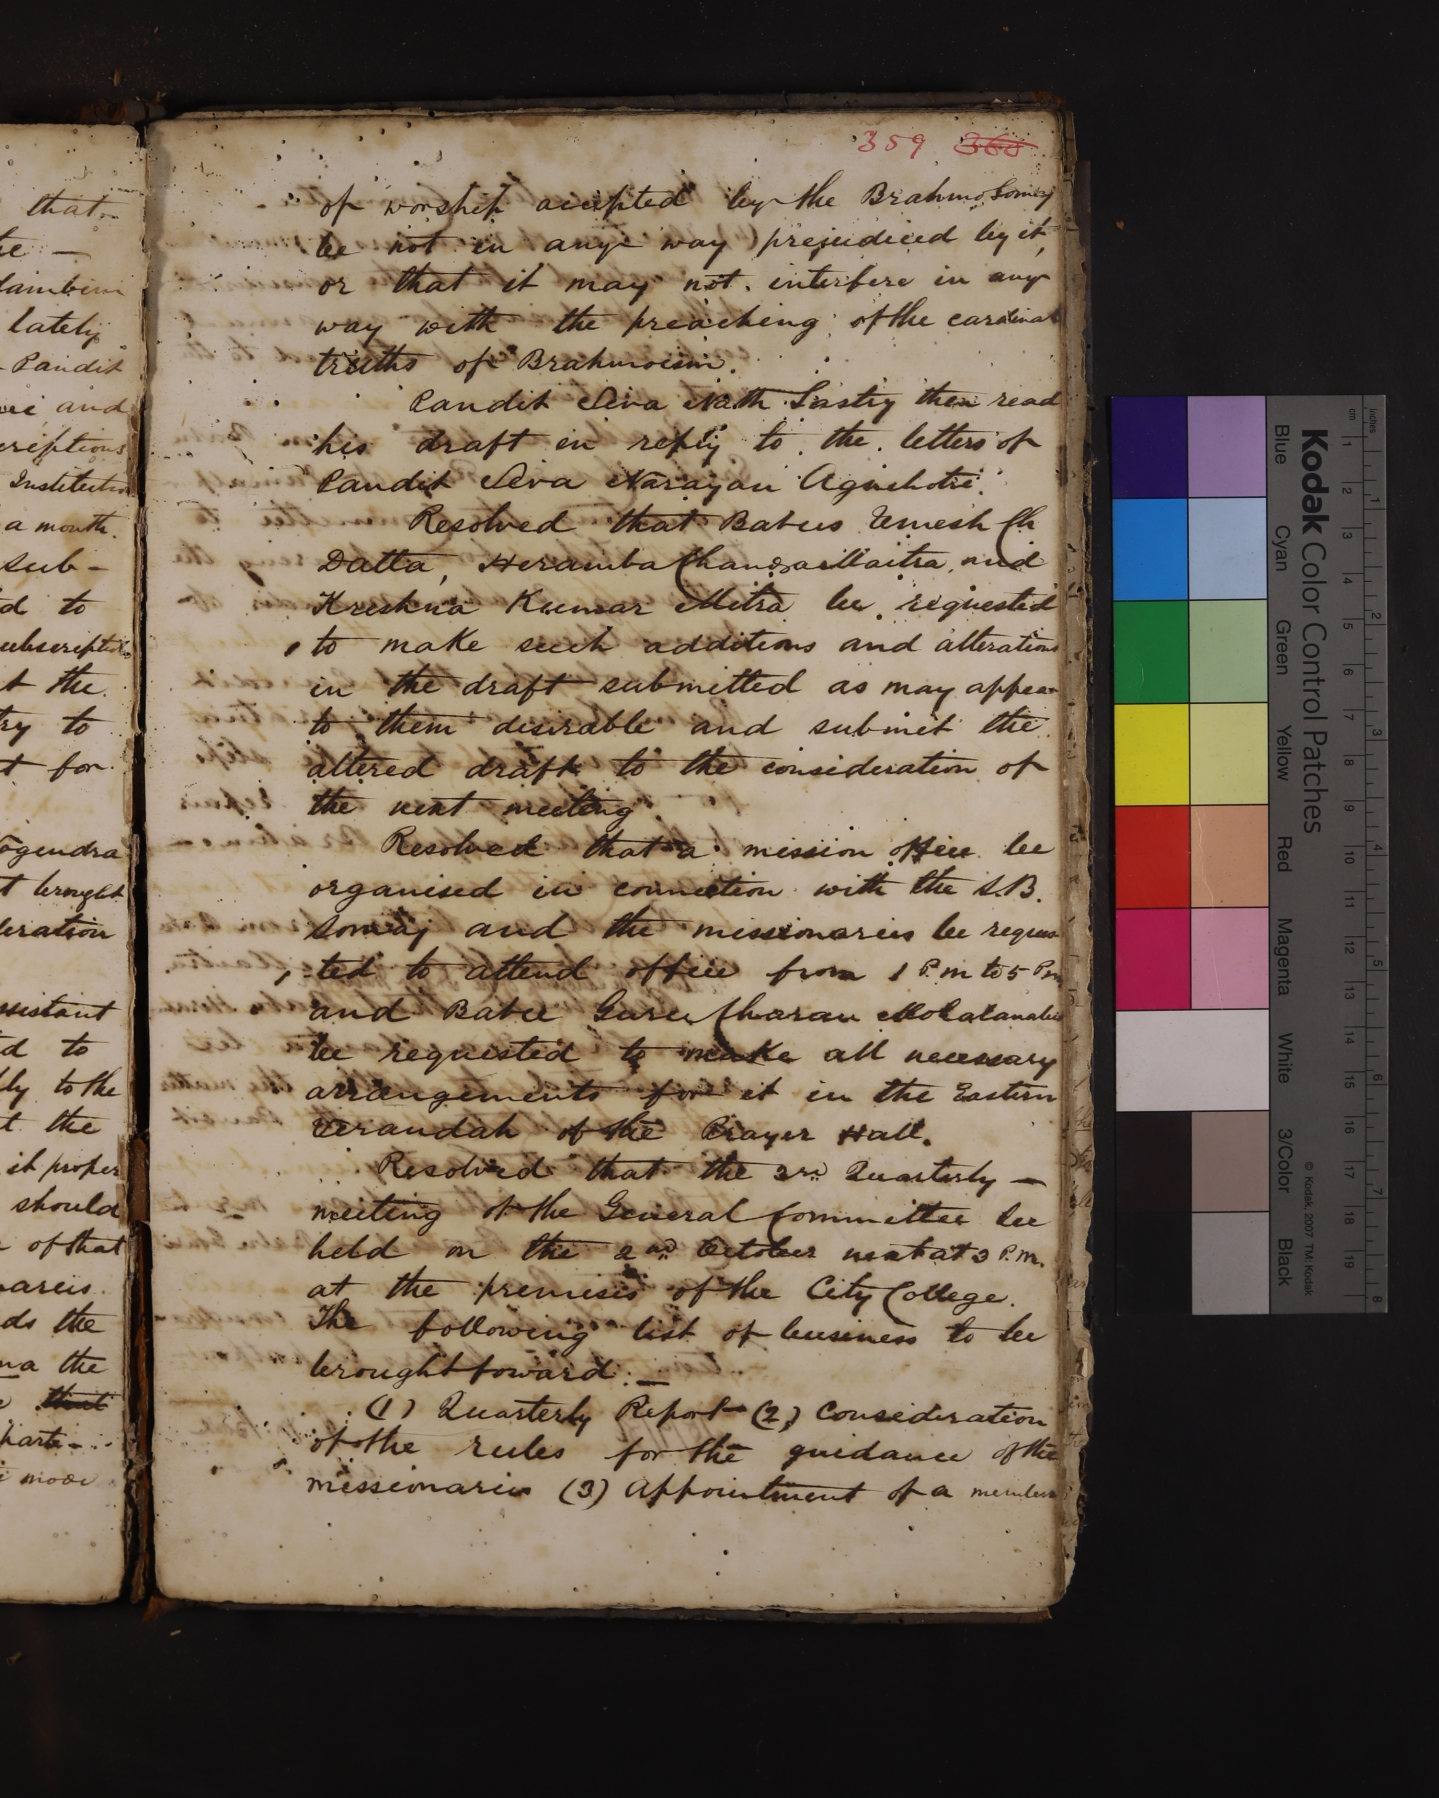 that
te —
lately
Pandit
and
criptions
Institution
a month.
sub-
d to
ubscription
t the
try to
t for
ogendra
t brought
eration
ssistant
d to
ly to the
t the
it proper
should
of that
ds the
na the
that
parti-
359 360
of worship accepted by the Brahmo Somaj
be not in any way prejudiced by it,
or that it may not interfere in any
way with the preaching of the cardinal
truths of Brahmoism.
Pandit Siva Nath Sastry then read
his draft in reply to the letters of
Pandit Siva Narayan Agnihotri.
Resolved that Babus Umesh Ch
Datta, Heramba Chandra Maitra and
Krishna Kumar Mitra be requested
to make such additions and alterations
in the draft submitted as may appear
to them desirable and submit the
altered draft to the consideration of
the next meeting.
Resolved that a mission office be
organised in connection with the S.B.
Somaj and the missionaries be reques
ted to attend office from 1 P.m to 5 P.m
and Babu Guru Charan Mohalanabis
be requested to make all necessary
arrangements for it in the Eastern
Verandah of the Prayer Hall.
Resolved that the 3rd Quarterly —
meeting of the General Committee be
held on the 2nd October next at 3 P.m.
at the premises of the City College.
The following list of business to be
brought foward:—
(1) Quarterly Report (2) Consideration
of the rules for the guidance of the
missionaries (3) Appointment of a member
Kodak Color Control Patches
Blue Cyan Green Yellow Red Magenta White 3/Color Black
© Kodak, 2007 TM: Kodak
inches 1 2 3 4 5 6 7 8
cm 1 2 3 4 5 6 7 8 9 10 11 12 13 14 15 16 17 18 19